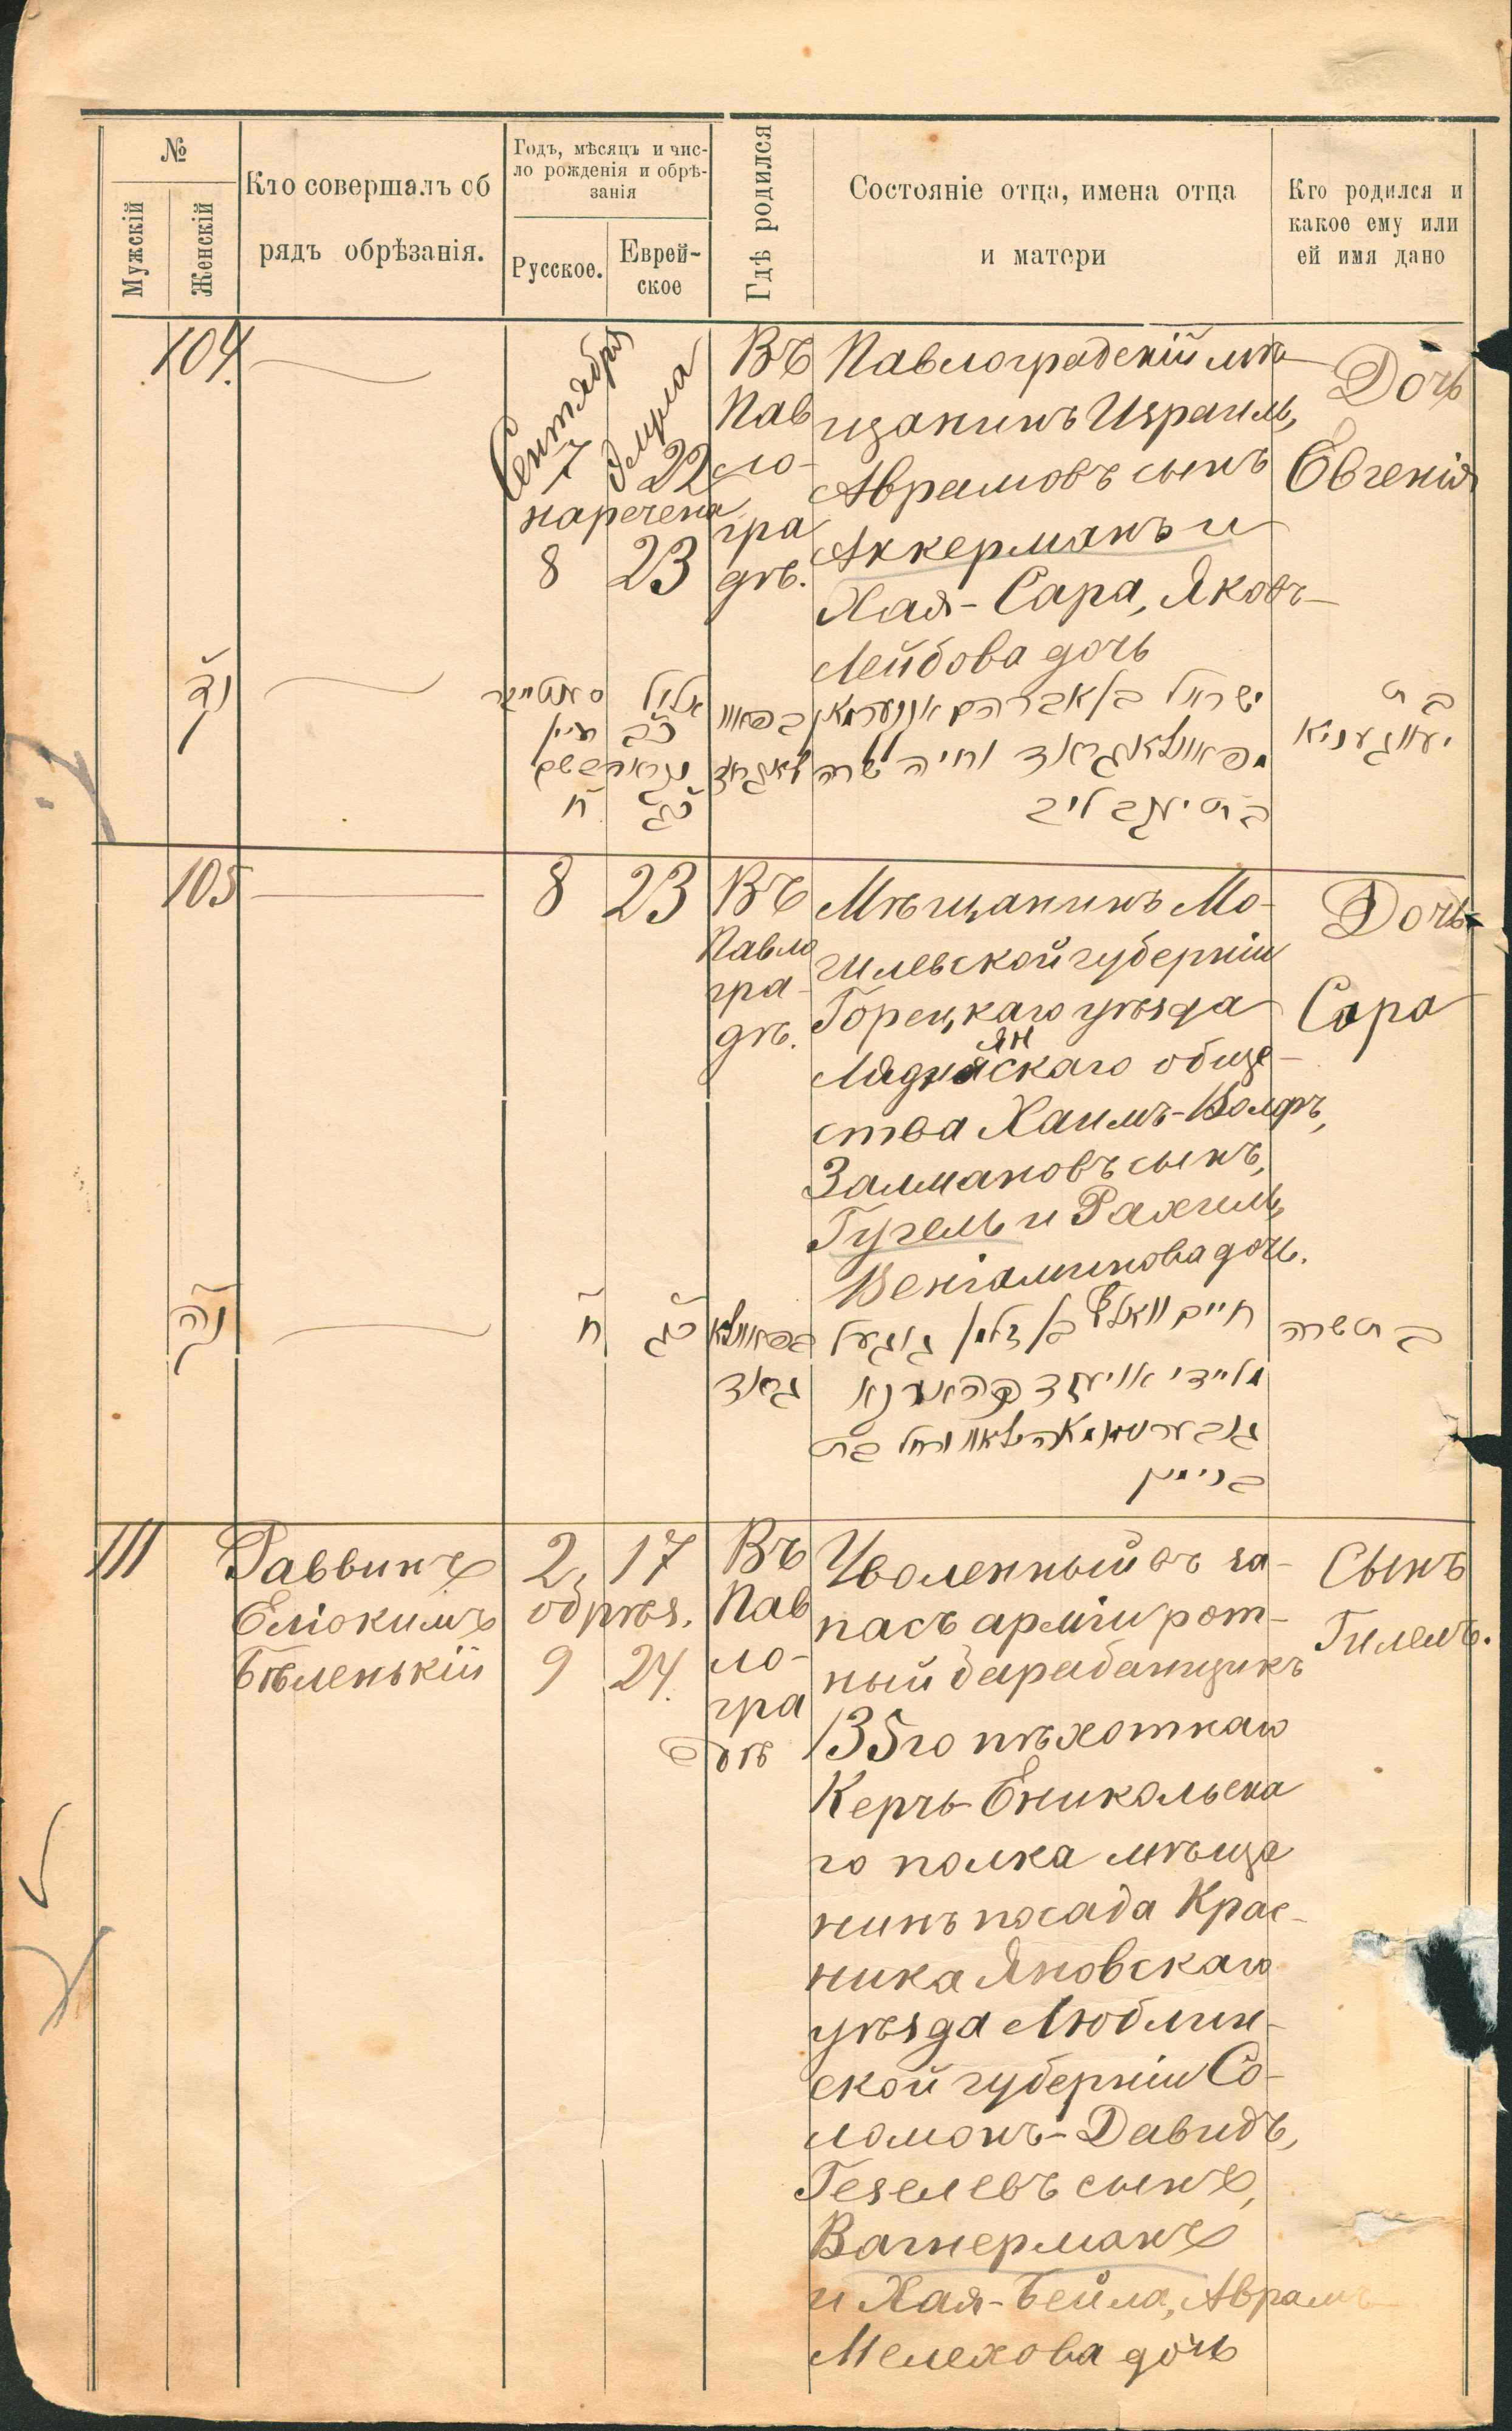 №
Мужскій
Женскій
Кто совершалъ об
рядъ обрѣзанія.
Годъ, мѣсяцъ и чис-
ло рожденія и обрѣ-
занія
Русское.
Еврей-
ское
Гдѣ родился
Состояніе отца, имена отца
и матери
Кто родился и
какое ему или
ей имя дано
104.
Сентября
7
Элула
22
наречена
8 23
Въ
Пав
ло-
гра
дѣ.
Павлоградскій мѣ-
щанинъ Израиль,
Аврамовъ сынъ
Аккерманъ и
Хая-Сара, Яковъ-
Лейбова дочь
Дочь
Евгенія
קד
אלול
כב
כג
ח
ישראל בן אברהם אקערמאן
מפאוולאגראד וחיה שרה
בת יעקב ליב
בת
יעווגעניא
105
8
23
Въ
Павло
гра-
дѣ.
Мѣщанинъ Мо-
гилевской губерніи
Горецкаго уѣзда
Лядянскаго обще-
ства Хаимъ-Вольфъ,
Залмановъ сынъ,
Гугель и Рахиль,
Веніаминова дочь.
Дочь
Сара
קה
ח
כג
חיים וואלף בן זלמן גוגעל
בנימין
בת שרה
111
Раввинъ
Еліокимъ
Бѣленькій
2, 17
обрѣз.
9 24.
Въ
Пав
ло-
гра
дѣ
Уволенный въ за-
пасъ арміи рот-
ный барабанщикъ
135го пѣхотнаго
Керчь-Еникольска
го полка мѣща
нинъ посада Крас-
ника Яновскаго
уѣзда Люблин-
ской губерніи Со-
ломонъ-Давидъ,
Гезелевъ сынъ,
Вагнерманъ
и Хая-Бейла, Аврамъ-
Мелехова дочь
Сынъ
Гилель.